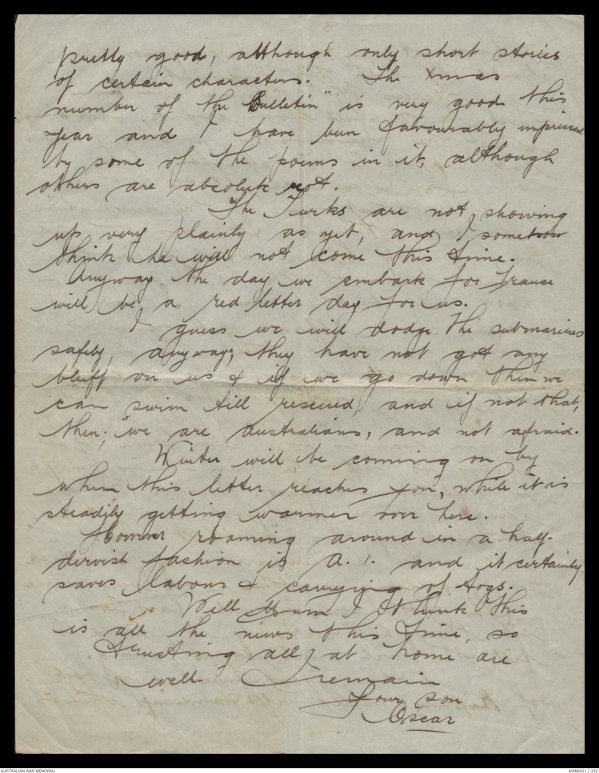 pretty good, although only short stories
of certain characters. The Xmas
number of the "Bulletin" is very good this
year and I have been favourably impressed
by some of the poems in it, although
others are absolute rot.
The Turks are not showing
up very plainly as yet, and I somehow
think he will not come this time.
Anyway the day we embark for France
will be a red letter day for us.
I guess we will dodge the submarines
safely, anyway; they have not got any
bluff on us & if we go down then we
can swim till rescued and if not that,
then; "we are Australians, and not afraid.
Winter will be coming on by
when this letter reaches you, while it is
steadily getting warmer over here.
However roaming around in a half-
dervish fashion is A.1. and it certainly
saves labour & carrying of togs.
Well Mum I think this
is all the news this time, so
trusting all at home are
well I remain
Your son
Oscar
AUSTRALIAN WAR MEMORIAL